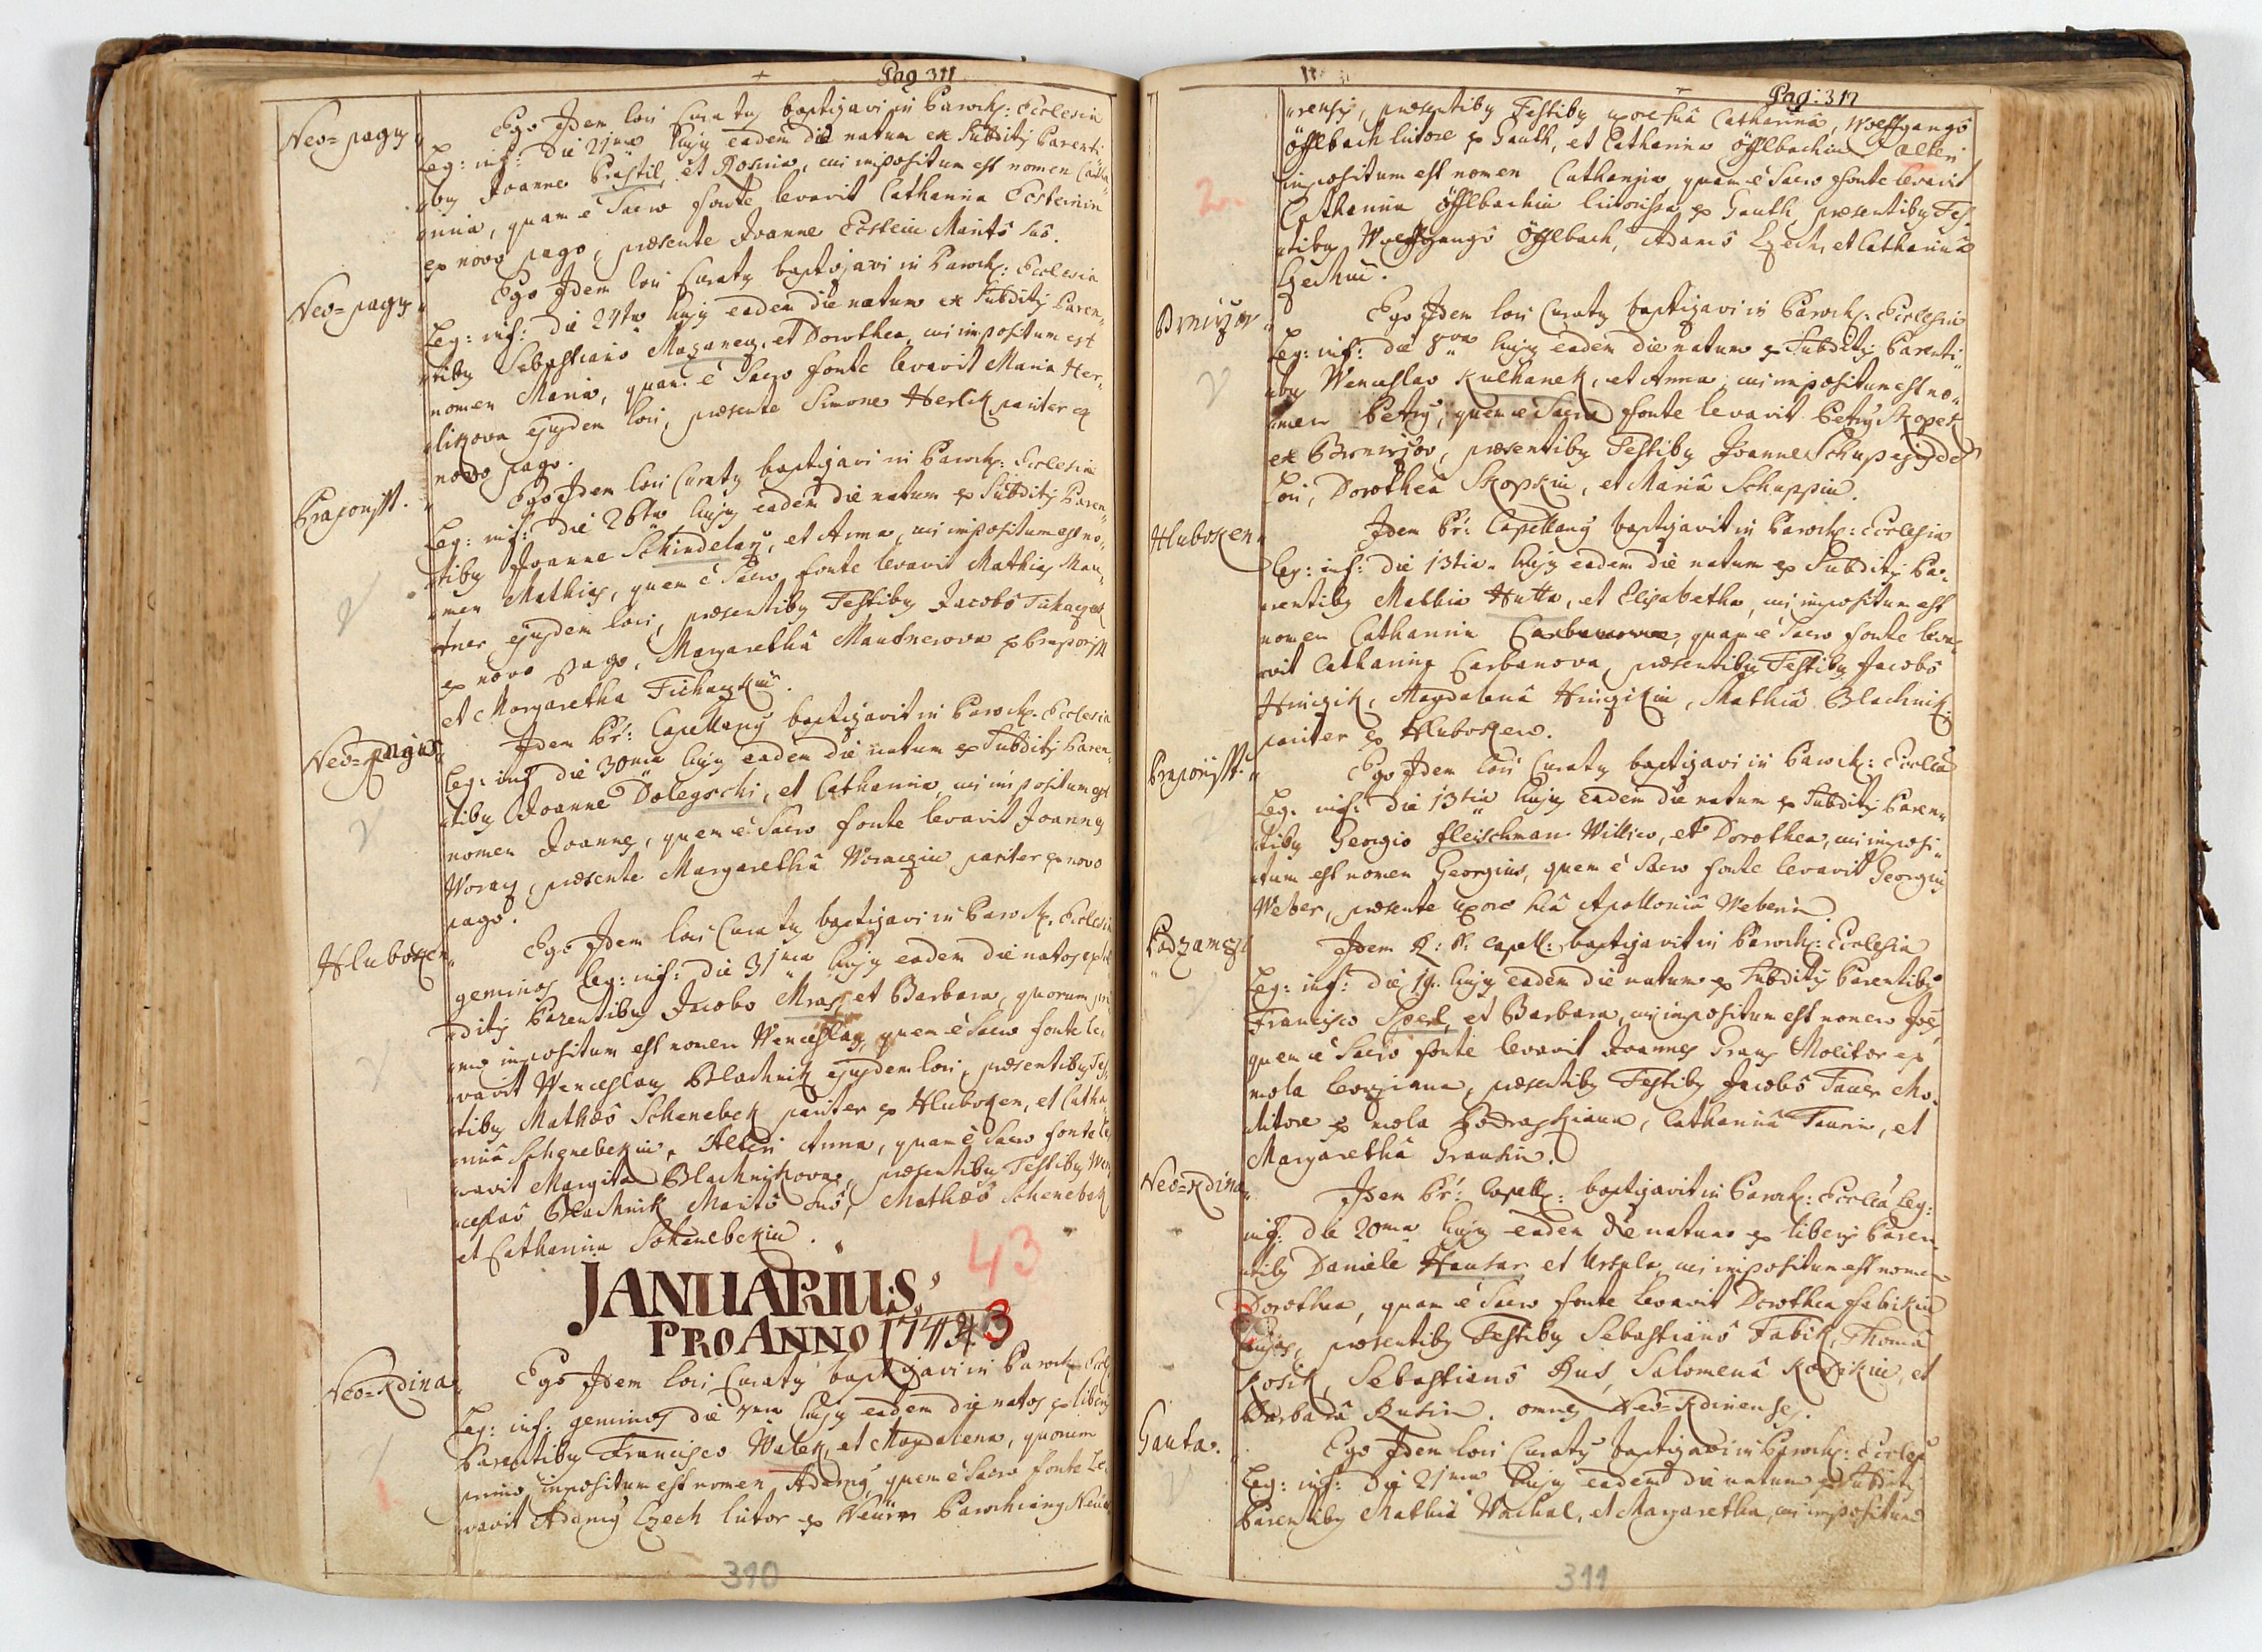 Pag 311
Neo=pagus
Ego Idem loci Curatus baptizavi in Paroch: Ecclesia
Leg: inf: die 21ma hujus eadem die natum ex Subditis Parenti
bus Joanne Praštil et Rosina, cui impositum est nomen Catha
rina, quam è Sacro fonte levavit Catharina Ecsteinin
ex novo pago, præsente Joanne Ecstein Maritô suô.
Neo=pagus
Ego Idem loci Curatus baptizavi in Paroch: Ecclesia
Leg: inf: die 24ta hujus eadem die natum ex Subditis Paren
tibus Sebastiano Mazanec, et Dorothea, cui impositum est
nomen Maria, quam è Sacro fonte levavit Maria Her
likova ejusdem loci, præsente Simone Herlik pariter ex
novo pago.
Praporisst.
Ego Idem loci Curatus baptizavi in Paroch: Ecclesia
Leg: inf: die 26ta hujus eadem die natum ex Subditis Paren
tibus Joanne Schindelarz, et Anna, cui impositum est no
men Mathias, quem è Sacro fonte levavit Mathias Mau
tner ejusdem loci, præsentibus Testibus Jacobô Tichaczek
ex novo pago, Margarethâ Mautnerova ex Praporisst
et Margaretha Tichaczkin.
Neo=pagus
Idem Pr: Capellanus baptizavit in Paroch: Ecclesia
Leg: inf: die 30ma hujus eadem die natum ex Subditis Paren
tibus Joanne Dolegschi, et Catharina, cui impositum est
nomen Joannes, quem è Sacro fonte levavit Joannes
Woracz, præsente Margarethâ Woraczin pariter ex novo
pago.
Hluboken
Ego Idem loci Curatus baptizavi in Paroch: Ecclesia
geminos Leg: inf: die 31ma hujus eadem die natos ex Sub
ditis Parentibus Jacobo Mraz, et Barbara, quorum pri
mo impositum est nomen Wenceslaus, quem è Sacro fonte le
vavit Wenceslaus Blachnik ejusdem loci, præsentibus Tes
tibus Mathæô Schenebek pariter ex Hluboken, et Catha
rinâ Schenebekin, Alteri Anna, quam è Sacro fonte le
vavit Margita Blachnikova, præsentibus Testibus Wen
ceslaô Blachnik Maritô suô, Mathæô Schenebek
et Catharina Schenebekin.
43
JANUARIUS
PRO ANNO 1743
Neo=Kdina
Ego Idem loci Curatus baptizavi in Paroch: Eccl:
Leg: inf: geminos die 7ma hujus eadem die natos ex liberis
Parentibus Francisco Walek, et Magdalena, quorum
primo impositum est nomen Adamus, quem è Sacro fonte le
vavit Adamus Czech lictor ex Neürn Parochianus Neü
310
Pag: 312
rensis, præsentibus Testibus uxore suâ Catharinâ, Wolffgangô
Öfflbach lictore ex Gauth, et Catharina Öfflbachin Alteri
impositum est nomen Catharina, quam è Sacro fonte levavit
2
Catharina Öfflbachin lictorissa ex Gauth, præsentibus Tes
tibus Wolffgangô Öfflbach, Adamô Czech, et Catharinâ
Czechin.
Brnirzow
Ego Idem loci Curatus baptizavi in Paroch: Ecclesia
Leg: inf: die 8va hujus eadem die natum ex Subditis Parenti
bus Wenceslao Kulhanek, et Anna, cui impositum est no
men Petrus, quem è Sacro fonte levavit Petrus Skopek
ex Brnirzov, præsentibus Testibus Joanne Schup ejusdem
loci, Dorotheâ Skopkin, et Mariâ Schuppin.
Hluboken
Idem Pr: Capellanus baptizavit in Paroch: Ecclesia
Leg: inf: die 13tia hujus eadem die natum ex Subditis Pa
rentibus Mathia Hutta, et Elisabetha, cui impositum est
nomen Catharina Carbanova, quam è Sacro fonte leva
vit Catharina Carbanova, præsentibus Testibus Jacobô
Hnizik, Magdalenâ Hnizikin, Mathiâ Blachnik
pariter ex Hluboken.
Praporisst.
Ego Idem loci Curatus baptizavi in Paroch: Ecclia
Leg: inf: die 13tia hujus eadem die natum ex Subditis Paren
tibus Georgio Fleischman Willico, et Dorothea, cui imposi
tum est nomen Georgius, quem è Sacro fonte levavit Georgius
Weber, præsente uxore suâ Apolloniâ Weberin
Podzamczi
Idem R: P: Capell: baptizavit in Paroch: Ecclesia
Leg: inf: die 19. hujus eadem die natum ex Subditis Parentibus
Francisco Sperl, et Barbara, cui impositum est nomen Joes,
quem è Sacro fonte levavit Joannes Graus Molitor ex
mola Leoziana, præsentibus Testibus Jacobô Tauer Mo
litore ex mola Podraskiana, Catharinâ Taurin, et
Margarethâ Grausin.
Neo=Kdina
Idem Pr: Capell: baptizavit in Paroch: Ecclia Leg:
inf: die 20ma hujus eadem die natum ex liberis Paren
tibus Daniele Hausar et Ursula cui impositum est nomen
Dorothea, quam è Sacro fonte levavit Dorothea Fabikin
præsentibus Testibus Sebastianô Fabik, Thomâ
Kosik, Sebastianô Rus, Salomenâ Kosikin, et
Barbarâ Rusin. omnes Neo=Kdinenses.
Gauta.
Ego Idem loci Curatus baptizavi in Paroch: Eccles
Leg: inf: die 21ma hujus eadem die natum ex Subditis
Parentibus Mathia Wachal, et Margaretha, cui impositum
311